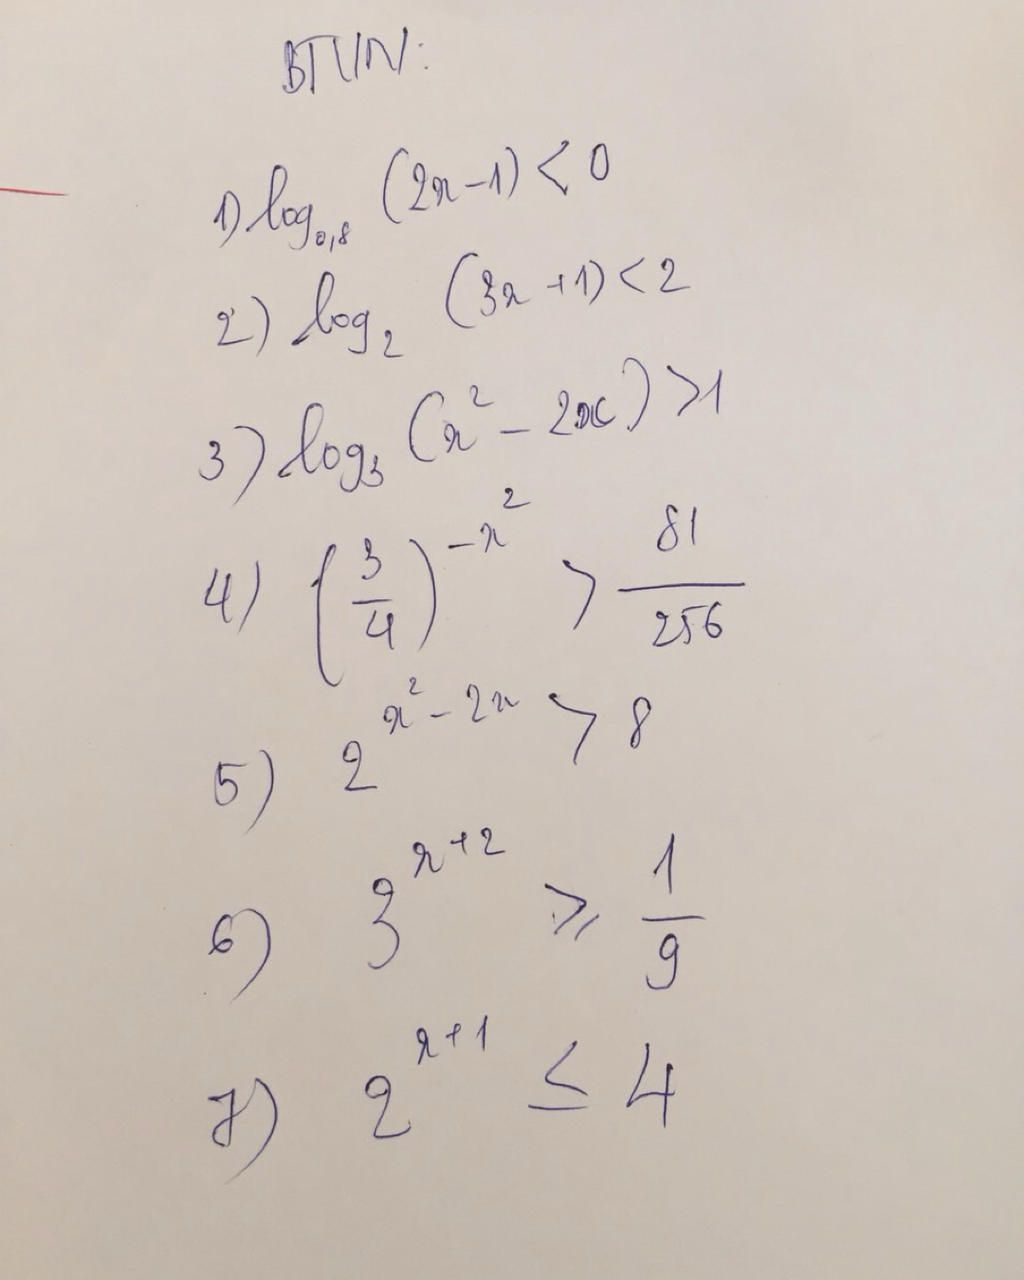 BTVN:
1) log₀,₈ (2x-1) < 0
2) log₂ (3x+1) < 2
3) log₃ (x² - 2x) > 1
4) (3/4)^(-x²) > 81/256
5) 2^(x² - 2x) > 8
6) 3^(x+2) ≥ 1/9
7) 2^(x+1) ≤ 4